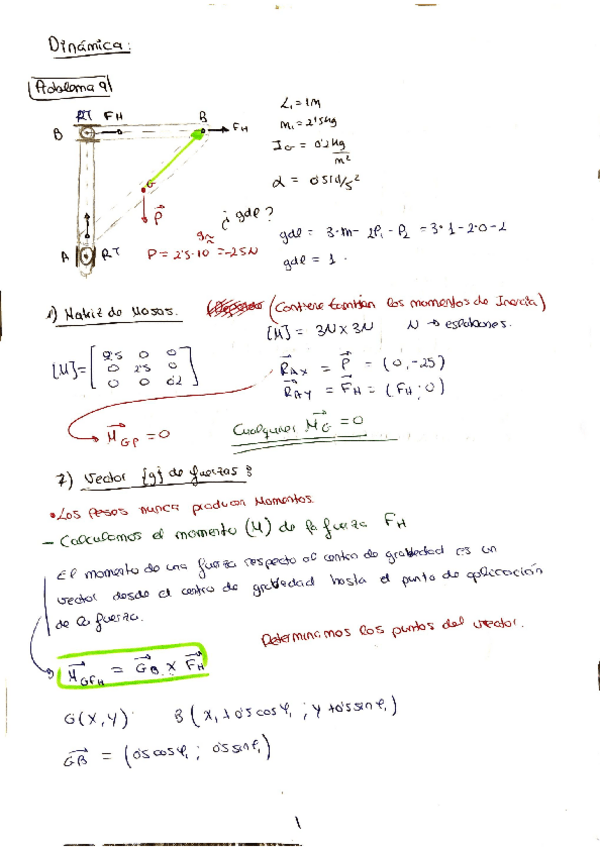 Dinámica:
Adaloma 9
RT FH
B
B
FH
L₁ = 1M
m₁ = 2'5kg
I_G = 0'2 kg/m²
α = 0'5 rd/s²
G
P⃗
¿gdl?
A
RT
P = 2'5·10 = -25N
gdl = 3·m - 2P₁ - P₂ = 3·1 - 2·0 - 2
gdl = 1.
1) Matriz de Masas.
(Contiene también los momentos de Inercia)
[M] = 3N x 3N N → eslabones.
[M] = [2'5 0 0
0 2'5 0
0 0 0'2]
R⃗_AX = P⃗ = (0, -25)
R⃗_AY = F⃗_H = (FH ; 0)
M⃗_GP = 0
Cualquier M⃗_G = 0
2) Vector {g} de fuerzas:
• Los Pesos nunca producen Momentos.
- Calculamos el momento (M) de la fuerza FH
El momento de una fuerza respecto al centro de gravedad es un
vector desde el centro de gravedad hasta el punto de aplicación
de la fuerza.
Determinamos los puntos del vector.
M⃗_GFH = G⃗B x F⃗H
G(X,Y) B(X₁+0'5cosφ₁ ; Y+0'5sinφ₁)
G⃗B = (0'5cosφ₁ ; 0'5sinφ₁)
1